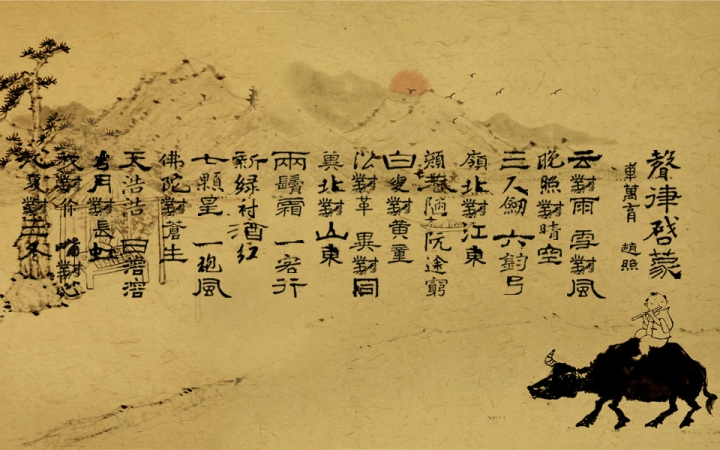 聲律啓蒙
車萬育 趙照
云對雨 雪對風
晚照對晴空
三尺劒 六鈞弓
嶺北對江東
顏巷陋 阮途窮
白叟對黄童
沿對革 異對同
冀北對山東
兩鬢霜 一客行
新緑衬酒红
七顆星 一袍風
佛陀對蒼生
天浩浩 日溶溶
月對長虹
我對你 嘴對心
夏對三冬